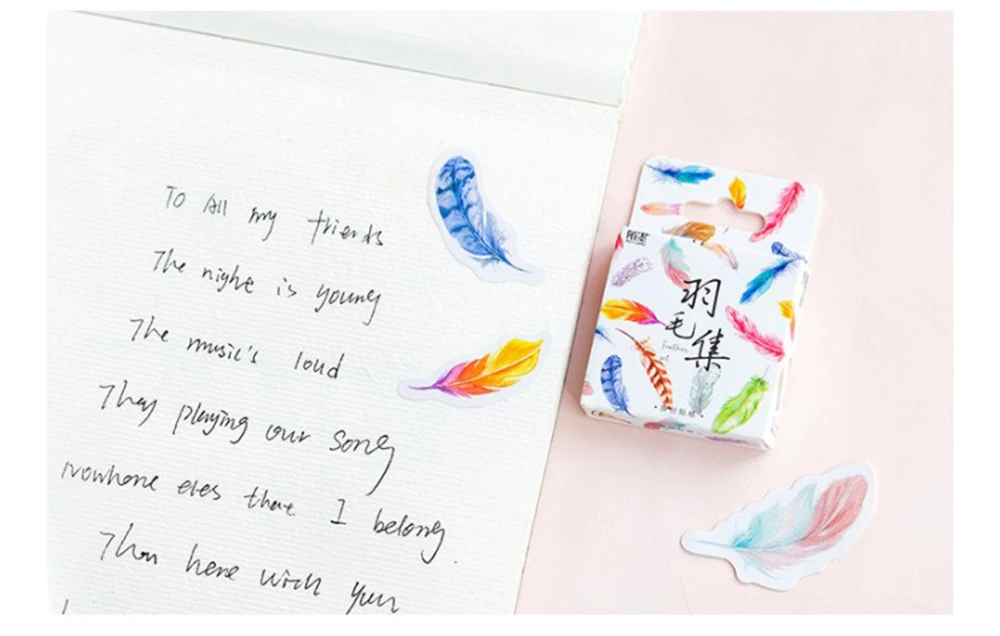 To All my friends
The night is young
The music's loud
They playing our song
Nowhone eles that I belong.
Than here with yun
羽毛集
feather
set